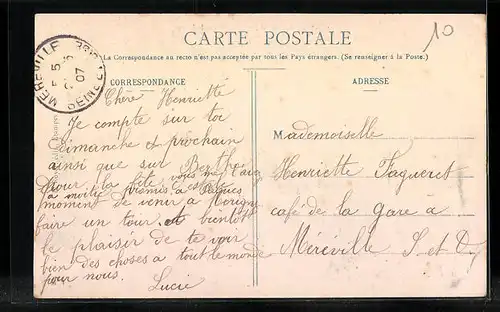 CARTE POSTALE
10
La Correspondance au recto n'est pas acceptée par tous les Pays étrangers. (Se renseigner à la Poste.)
MEREVILLE
SEINE ET
07
CORRESPONDANCE
Chère Henriette
Je compte sur toi
dimanche prochain
ainsi que sur Berthe
Pour la fête vous me l'avez
à moitié promis a Pâques c'est
moment de venir à Morigny
faire un tour à bientôt
le plaisir de te voir
bien des choses a tout le monde
pour nous.
Lucie
ADRESSE
Mademoiselle
Henriette Faqueret
café de la gare a
Méréville S. et O.